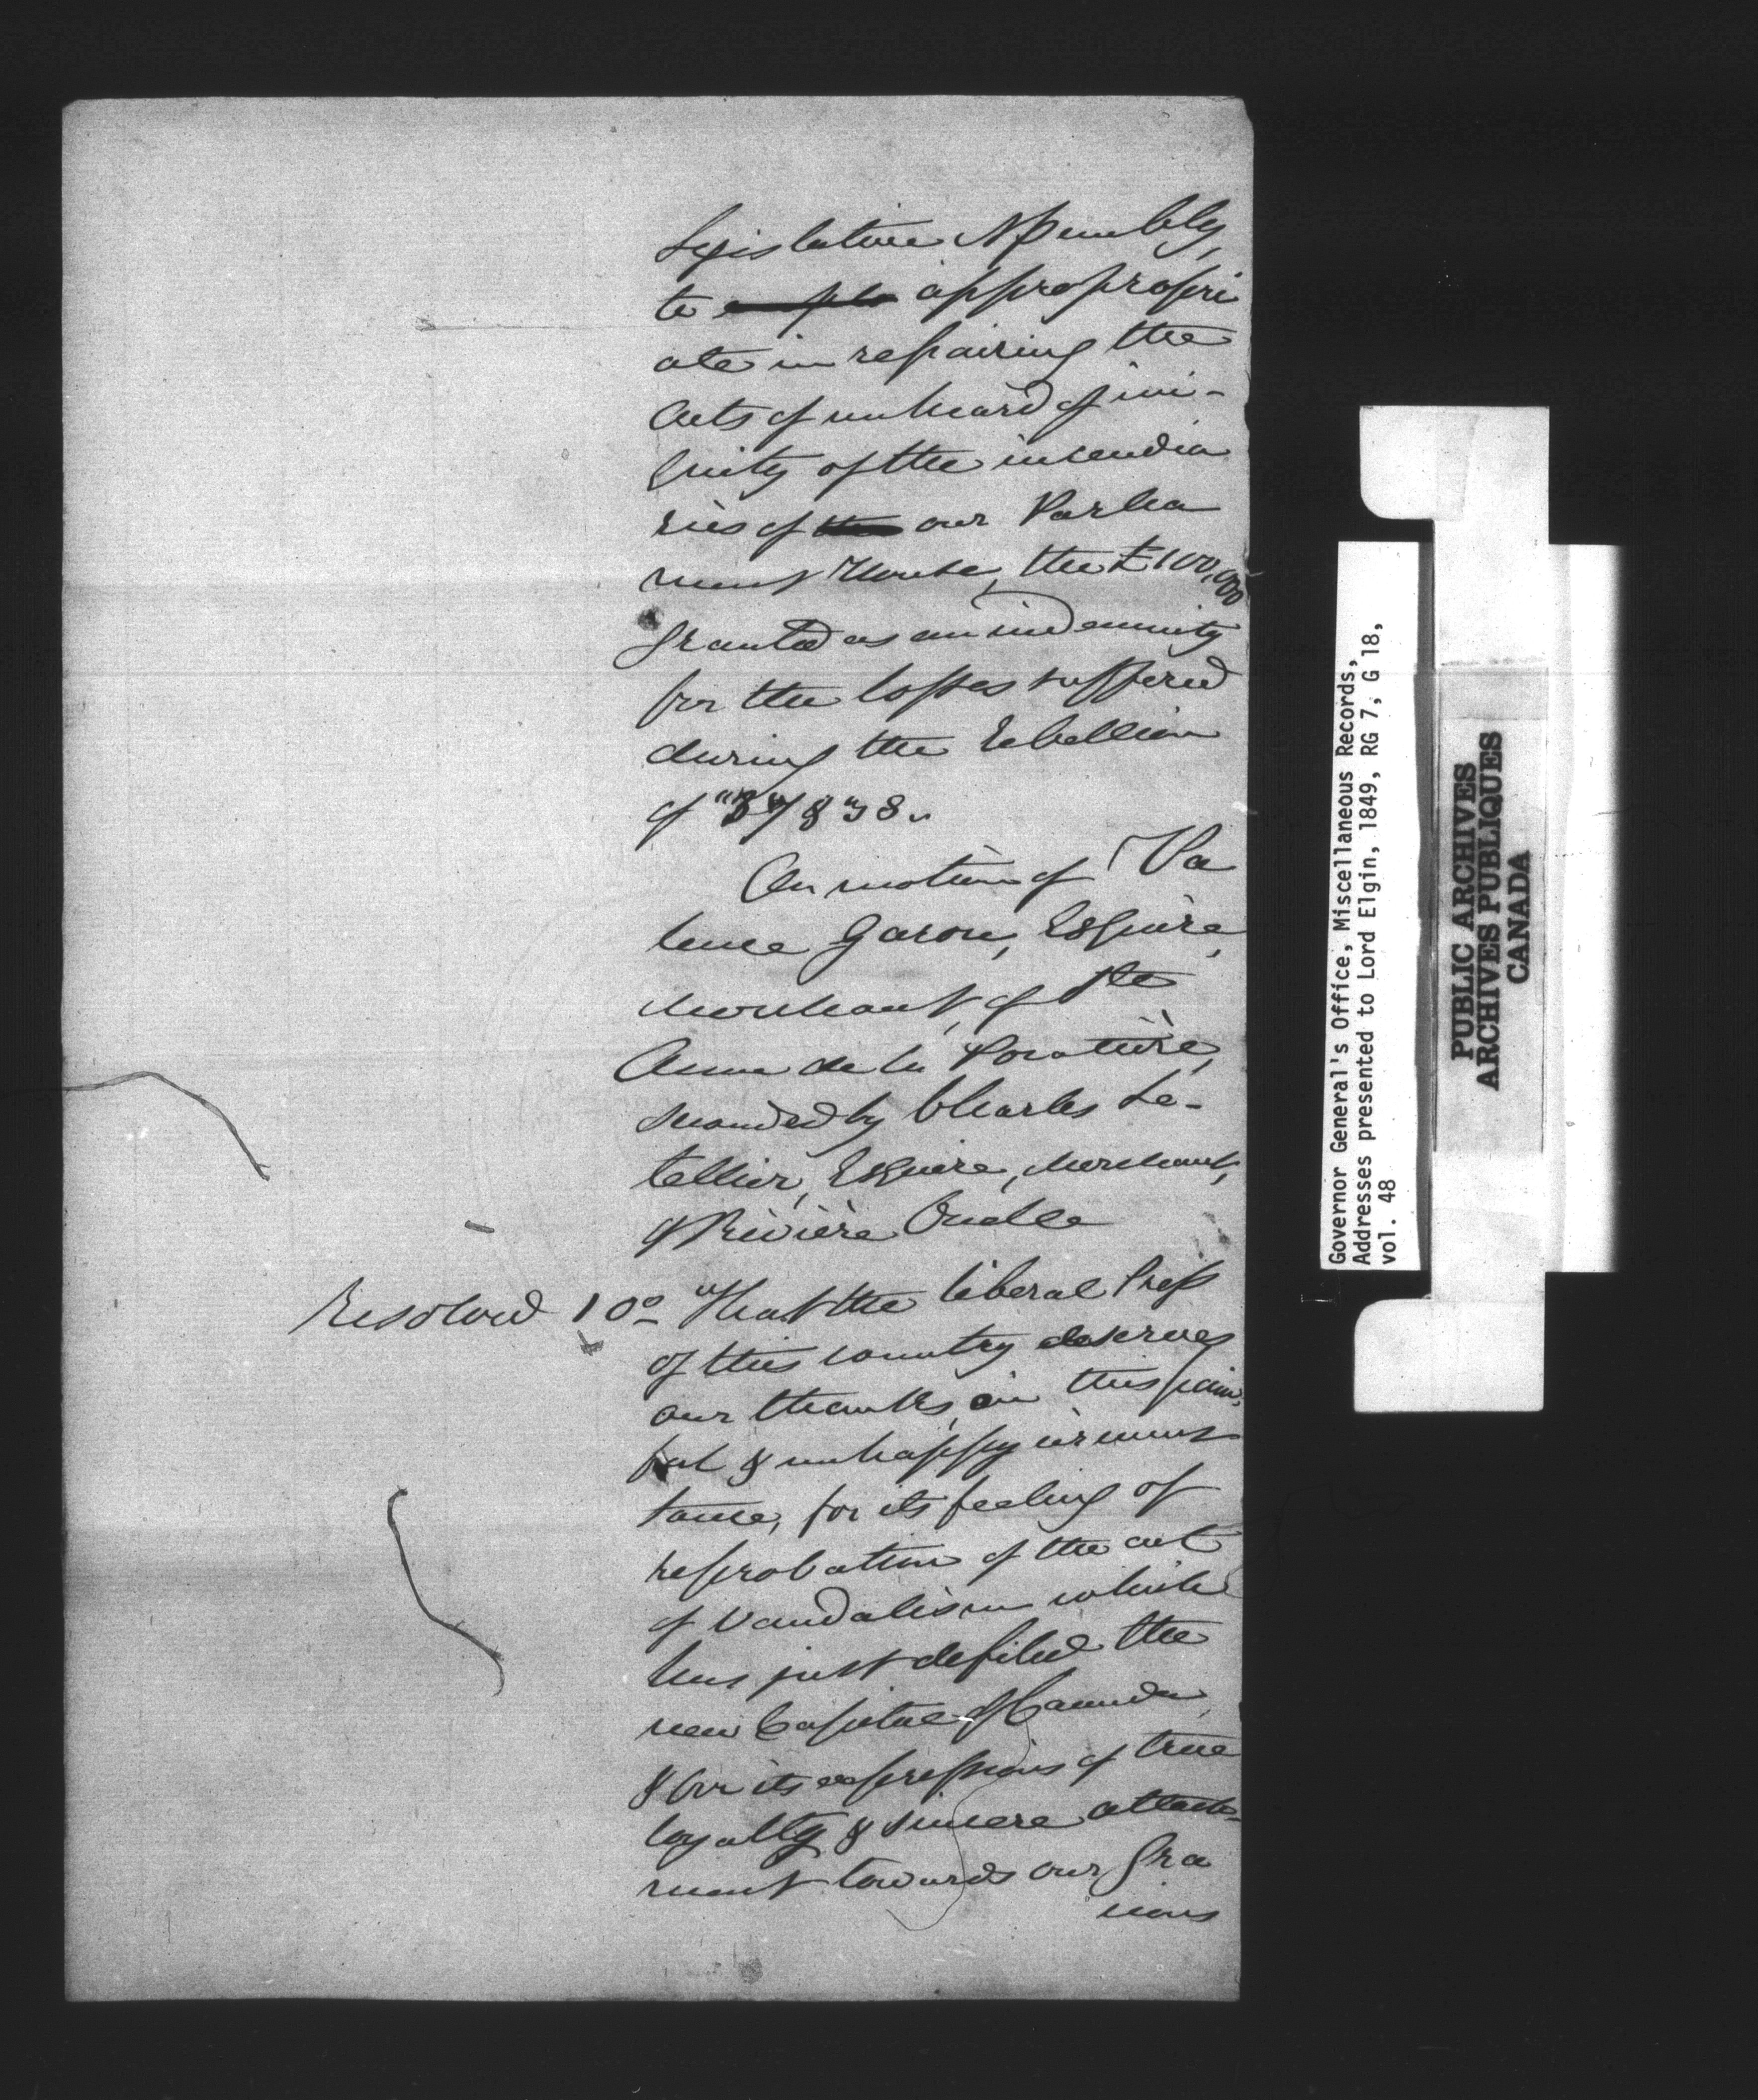 Legislative Assembly,
to appropropri
ate in repairing the
Acts of unheard of ini-
quity of the incendia
ries of our Parlia
ment House, the £100,000
granted as an indemnity
for the losses suffered
during the Rebellion
of "37 & "38.
On motion of Va
lence Garon, Esquire,
Merchant, of Ste
Anne de la Pocatière,
seconded by Charles Le-
tellier, Esquire, Merchant,
of Rivière Ouelle
Resolved 10º "That the liberal Press
of this country deserves
our thanks, in this pain-
ful & unhappy circums
tance, for its feeling of
reprobation of the act
of Vandalism which
has just defiled the
new Capital of Canada,
& for its expressions of true
loyalty & sincere attach-
ment towards our Gra
cious
Governor General's Office, Miscellaneous Records,
Addresses presented to Lord Elgin, 1849, RG 7, G 18,
vol. 48
PUBLIC ARCHIVES
ARCHIVES PUBLIQUES
CANADA